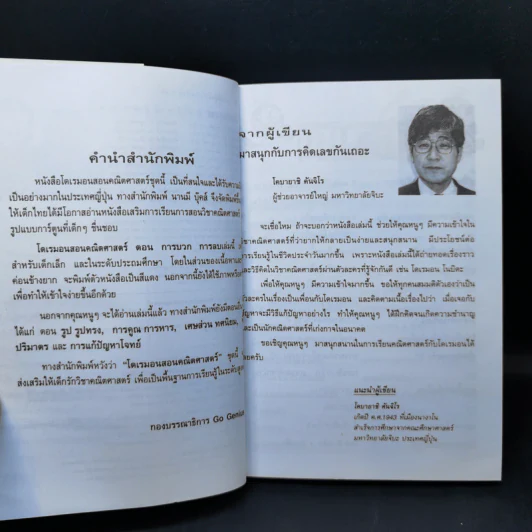 คำนำสำนักพิมพ์
หนังสือโดเรมอนสอนคณิตศาสตร์ชุดนี้ เป็นที่สนใจและได้รับความ
เป็นอย่างมากในประเทศญี่ปุ่น ทางสำนักพิมพ์ นานมี บุ๊คส์ จึงจัดพิมพ์ขึ้น
ให้เด็กไทยได้มีโอกาสอ่านหนังสือเสริมการเรียนการสอนวิชาคณิตศาสตร์
รูปแบบการ์ตูนที่เด็กๆ ชื่นชอบ
โดเรมอนสอนคณิตศาสตร์ ตอน การบวก การลบเล่มนี้
สำหรับเด็กเล็ก และในระดับประถมศึกษา โดยในส่วนของเนื้อหา
ค่อนข้างยาก จะพิมพ์ตัวหนังสือเป็นสีแดง นอกจากนี้ยังได้ใช้ภาพ
เพื่อทำให้เข้าใจง่ายขึ้นอีกด้วย
นอกจากคุณหนูๆ จะได้อ่านเล่มนี้แล้ว ทางสำนักพิมพ์ยังมีตอน
ได้แก่ ตอน รูป รูปทรง, การคูณ การหาร, เศษส่วน ทศนิยม,
ปริมาตร และ การแก้ปัญหาโจทย์
ทางสำนักพิมพ์หวังว่า "โดเรมอนสอนคณิตศาสตร์" ชุดนี้
ส่งเสริมให้เด็กรักวิชาคณิตศาสตร์ เพื่อเป็นพื้นฐานการเรียนรู้ในระดับสูง
กองบรรณาธิการ Go Genius
จากผู้เขียน
มาสนุกกับการคิดเลขกันเถอะ
โคบายาชิ คันจิโร
ผู้ช่วยอาจารย์ใหญ่ มหาวิทยาลัยจิบะ
จะเชื่อไหม ถ้าจะบอกว่าหนังสือเล่มนี้ ช่วยให้คุณหนูๆ มีความเข้าใจใน
วิชาคณิตศาสตร์ที่ว่ายากให้กลายเป็นง่ายและสนุกสนาน มีประโยชน์ต่อ
การเรียนรู้ในชีวิตประจำวันมากขึ้น เพราะหนังสือเล่มนี้ได้ถ่ายทอดเรื่องราว
และวิธีคิดในวิชาคณิตศาสตร์ผ่านตัวละครที่รู้จักกันดี เช่น โดเรมอน โนบิตะ
เพื่อให้คุณหนูๆ มีความเข้าใจมากขึ้น ขอให้ทุกคนสมมติตัวเองว่าเป็น
ตัวละครในเรื่องเป็นเพื่อนกับโดเรมอน และคิดตามเนื้อเรื่องไปว่า เมื่อเจอกับ
ปัญหาจะมีวิธีแก้ปัญหาอย่างไร ทำให้คุณหนูๆ ได้ฝึกคิดจนเกิดความชำนาญ
และเป็นนักคณิตศาสตร์ที่เก่งกาจในอนาคต
ขอเชิญคุณหนูๆ มาสนุกสนานในการเรียนคณิตศาสตร์กับโดเรมอนได้
เลยครับ
แนะนำผู้เขียน
โคบายาชิ คันจิโร
เกิดปี ค.ศ.1943 ที่เมืองนางาโน
สำเร็จการศึกษาจากคณะศึกษาศาสตร์
มหาวิทยาลัยจิบะ ประเทศญี่ปุ่น